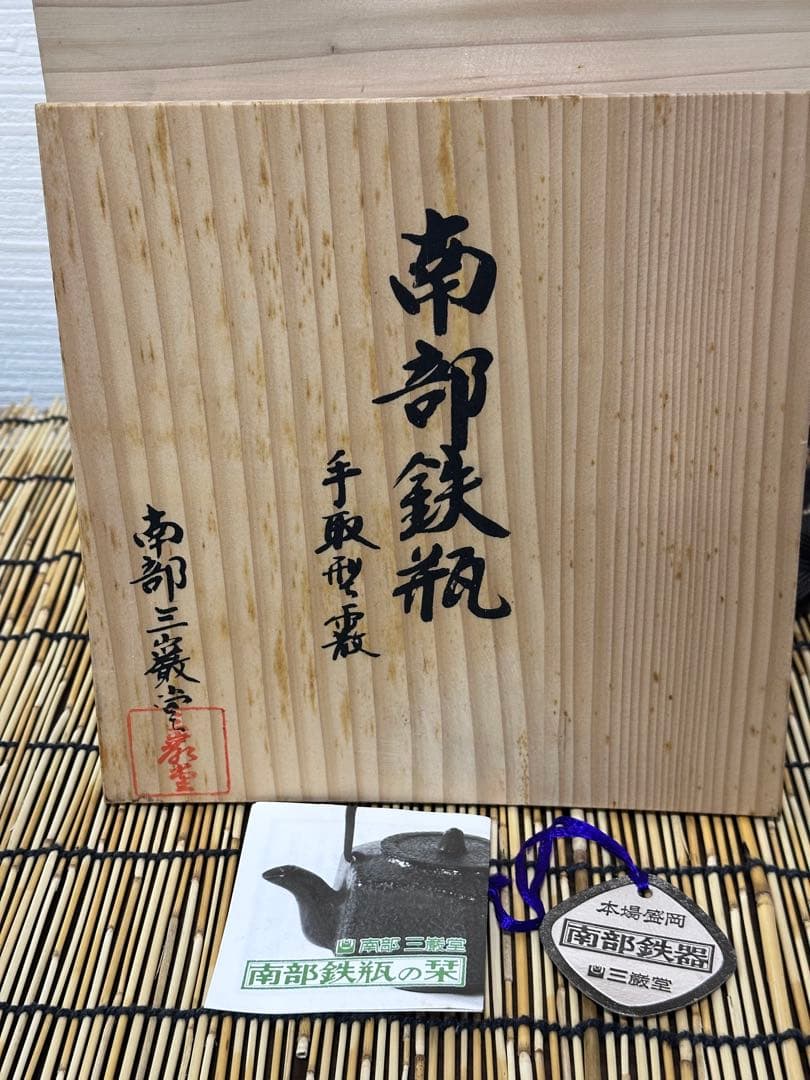 南部鉄瓶
手取型霰
南部三巌堂
三巌堂
南部 三巌堂
南部鉄瓶の栞
本場盛岡
南部鉄器
三巌堂